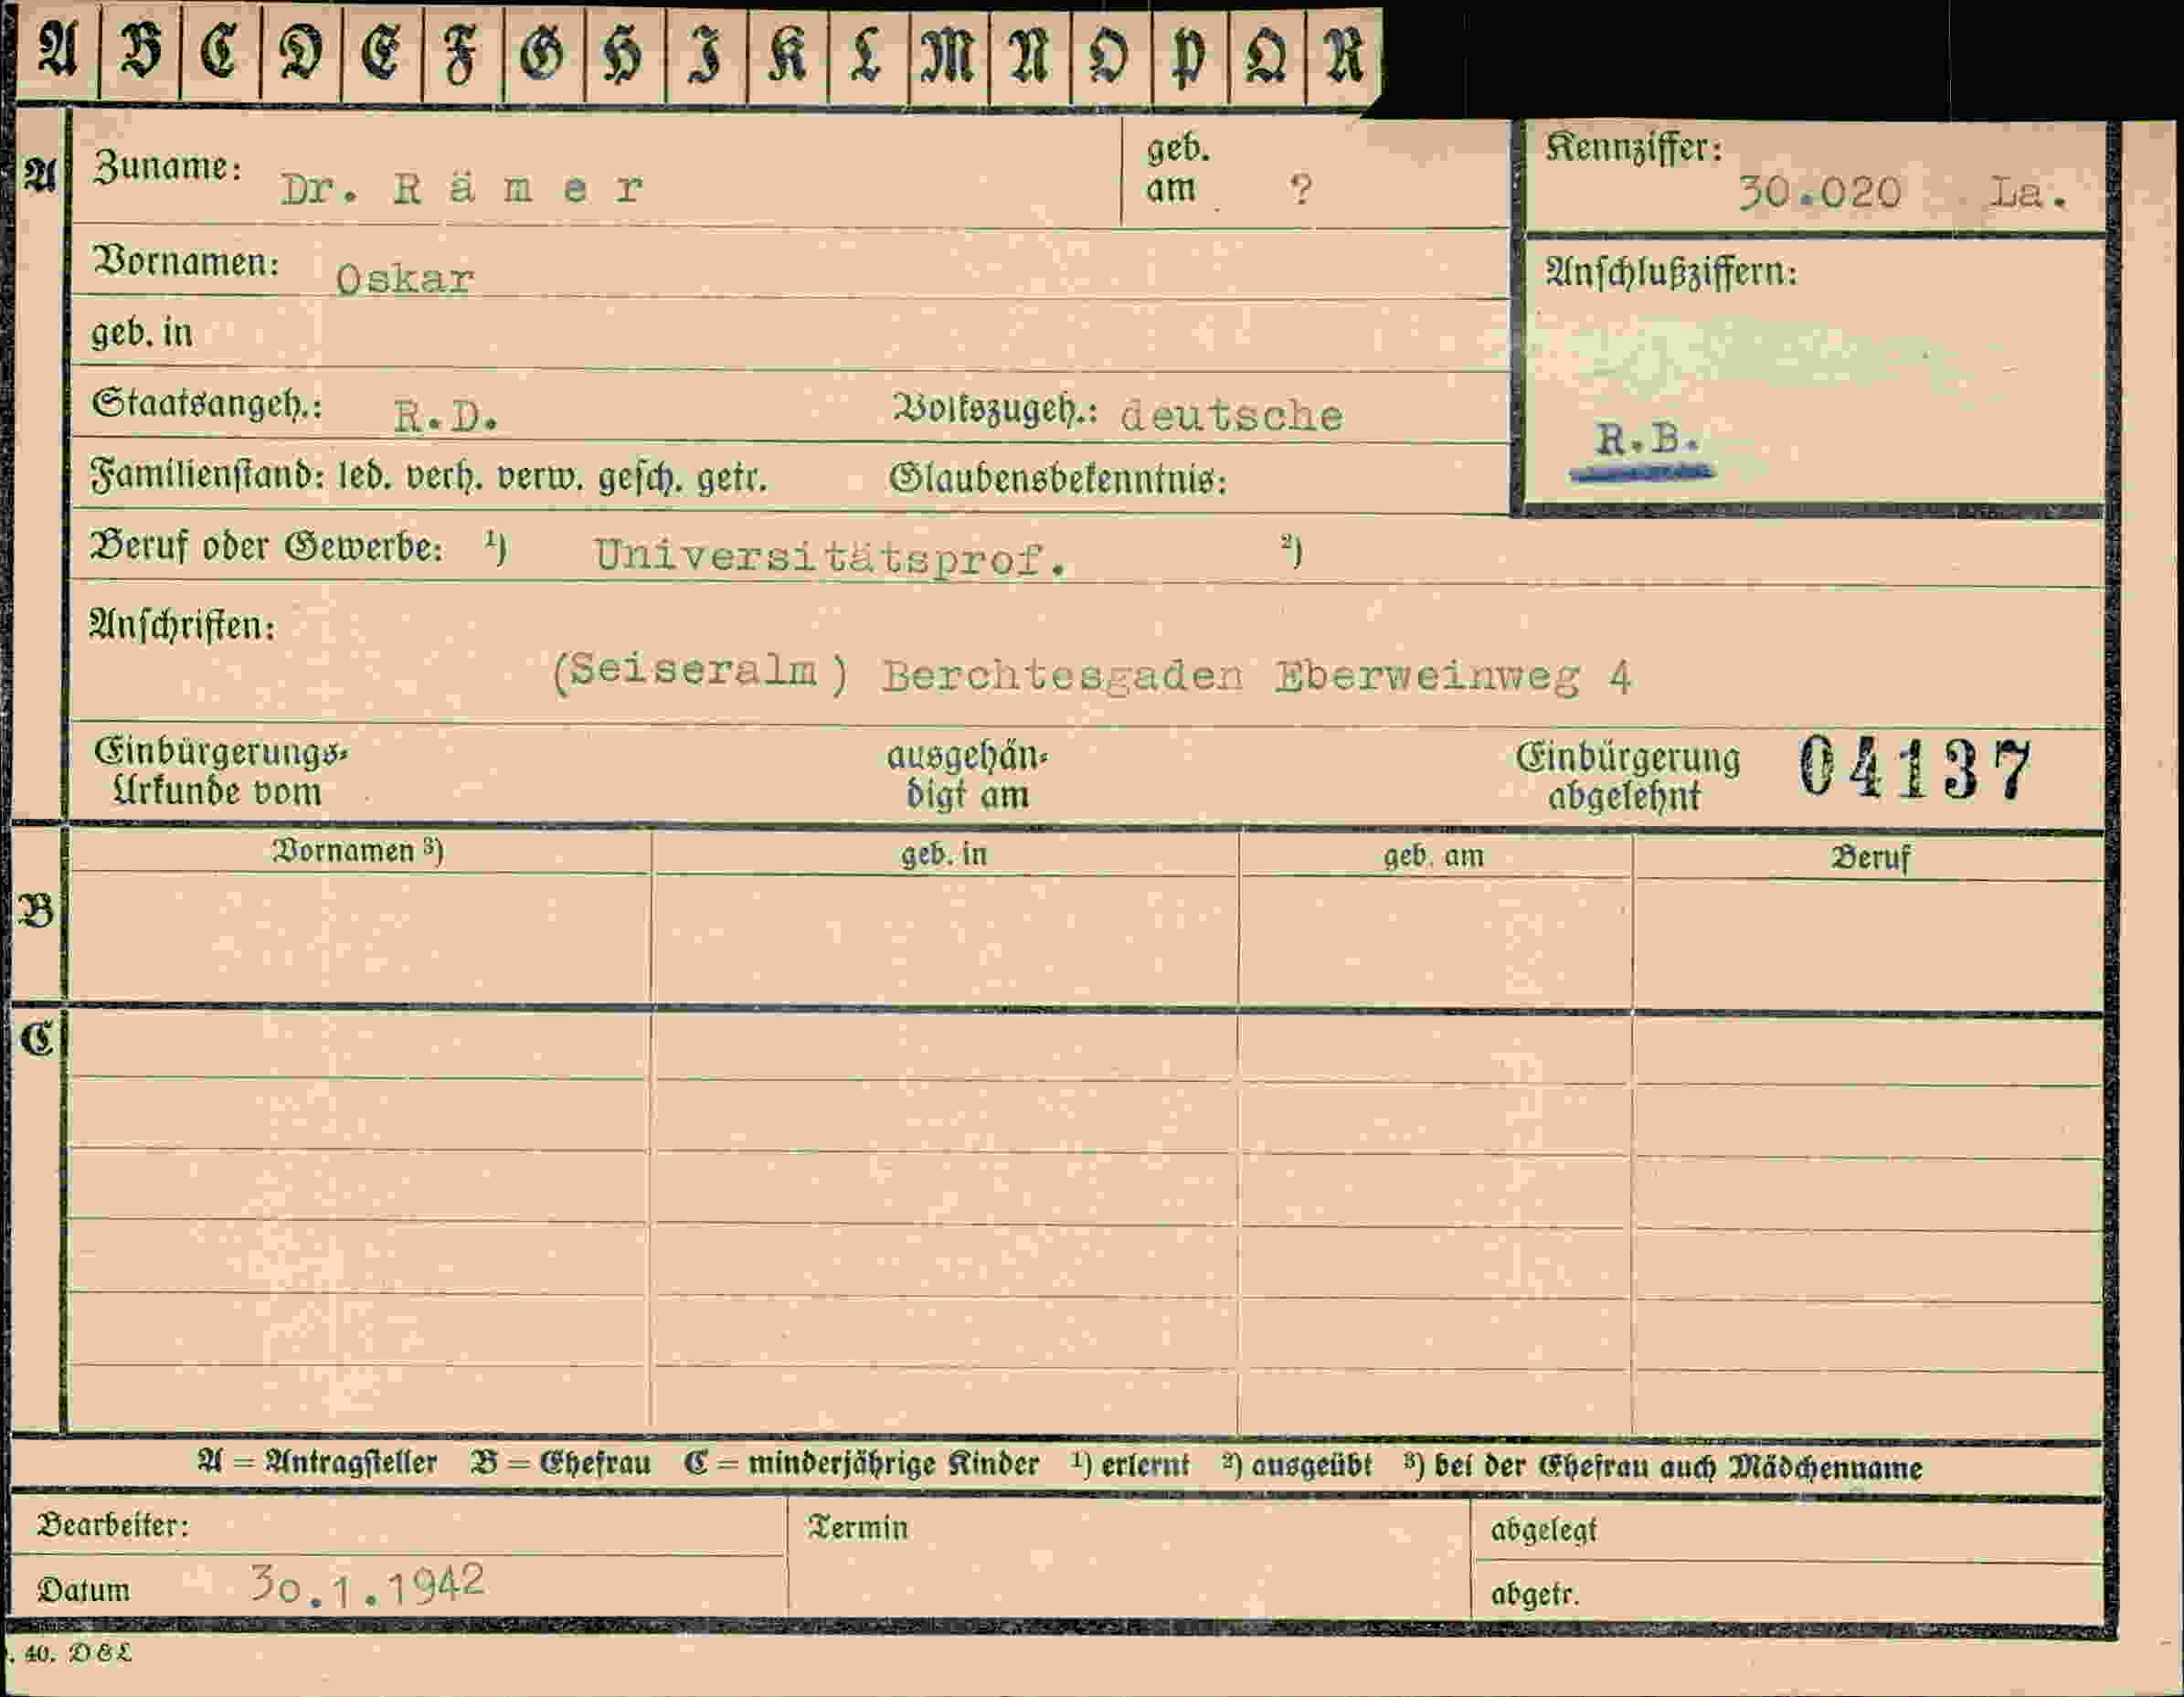 A B C D E F G H I K L M N O P Q R
A Zuname: Dr. R ä m e r geb. am ? Kennziffer: 30.020 La.
Vornamen: Oskar Anschlußziffern:
geb. in
Staatsangeh.: R.D. Volkszugeh.: deutsche R.B.
Familienstand: led. verh. verw. gesch. getr. Glaubensbekenntnis:
Beruf oder Gewerbe: ¹) Universitätsprof. ²)
Anschriften:
(Seiseralm) Berchtesgaden Eberweinweg 4
Einbürgerungs- ausgehän- Einbürgerung 04137
Urkunde vom digt am abgelehnt
Vornamen ³) geb. in geb. am Beruf
B
C
A = Antragsteller B = Ehefrau C = minderjährige Kinder ¹) erlernt ²) ausgeübt ³) bei der Ehefrau auch Mädchenname
Bearbeiter: Termin abgelegt
Datum 30.1.1942 abgetr.
. 40. D & L